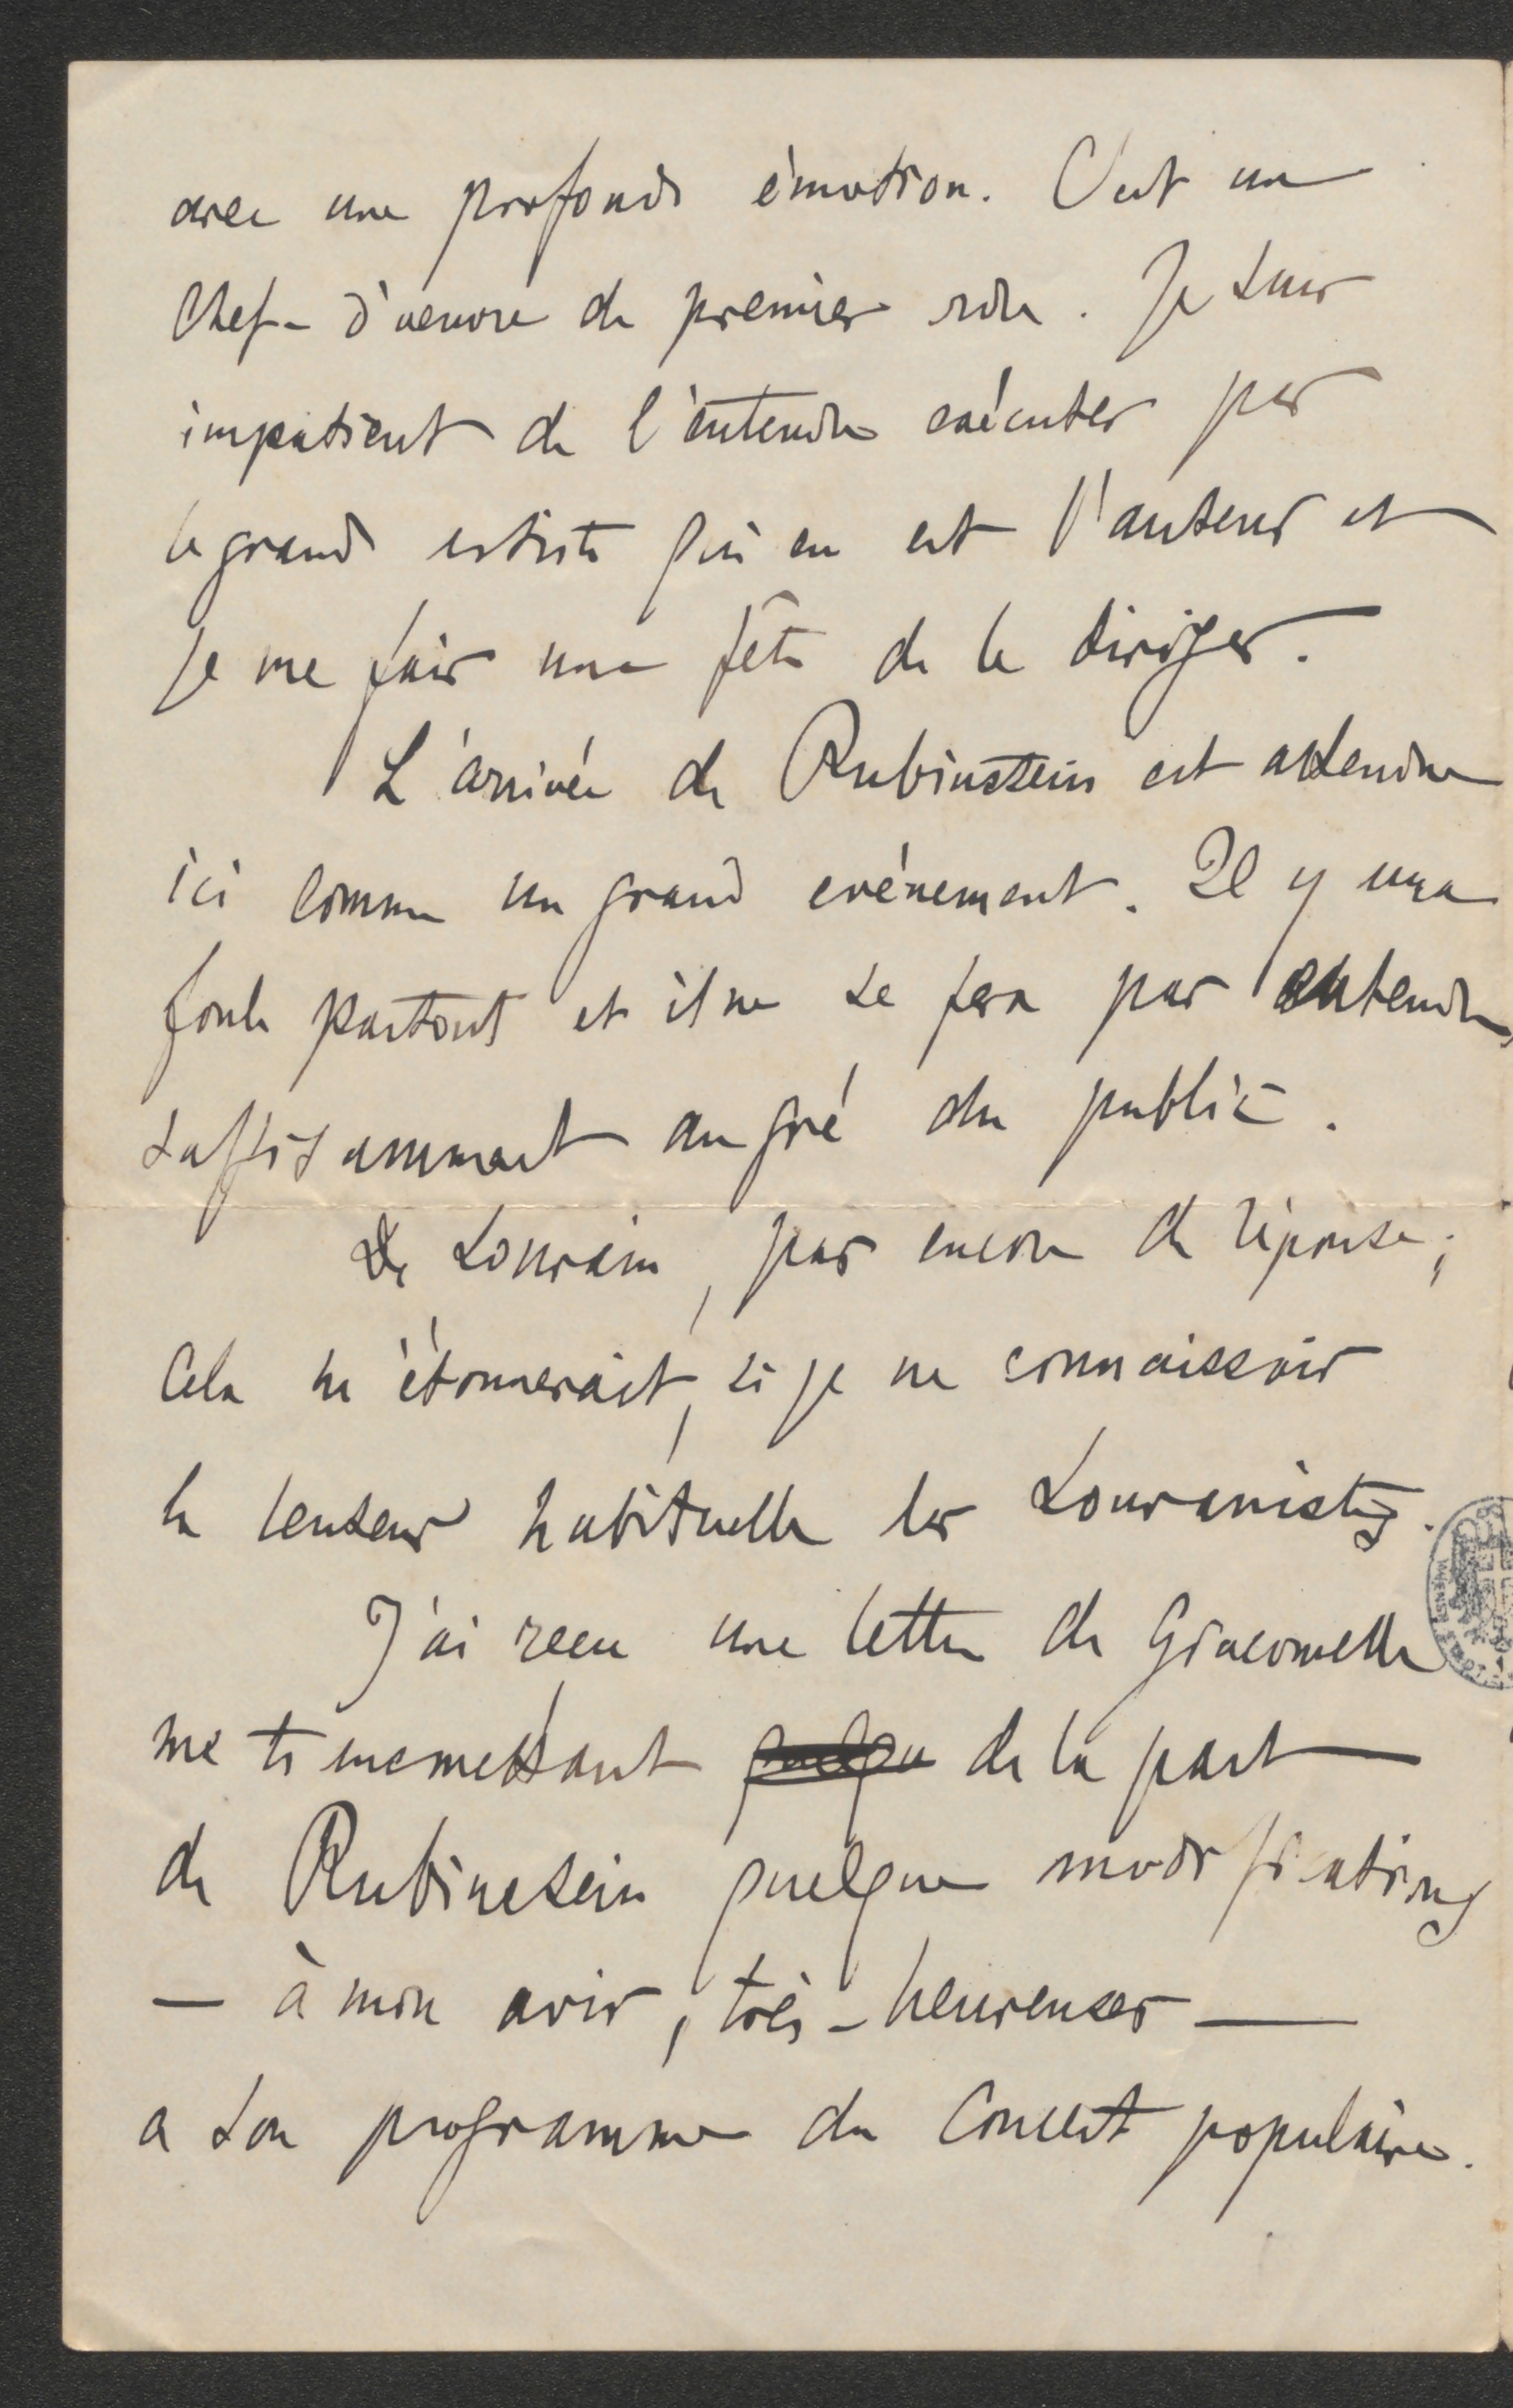 avec une profonde émotion. C'est un
Chef-d'œuvre de premier ordre. Je suis
impatient de l'entendre exécuter par
le grand artiste qui en est l'auteur et
je me fais une fête de le diriger.
L'arrivée de Rubinstein est attendue
ici comme un grand evénement. Il y aura
foule partout et il ne se fera pas entendre
suffisamment au gré du public.
De Louvain, pas encore de réponse;
Cela m'étonnerait, si je ne connaissais
la lenteur habituelle des Louvanistes.
J'ai recu une lettre de Giacomelli
me transmettant quelqu de la part
de Rubinstein quelques modifications
— à mon avis, très-heureuses —
a son programme du Concert populaire.